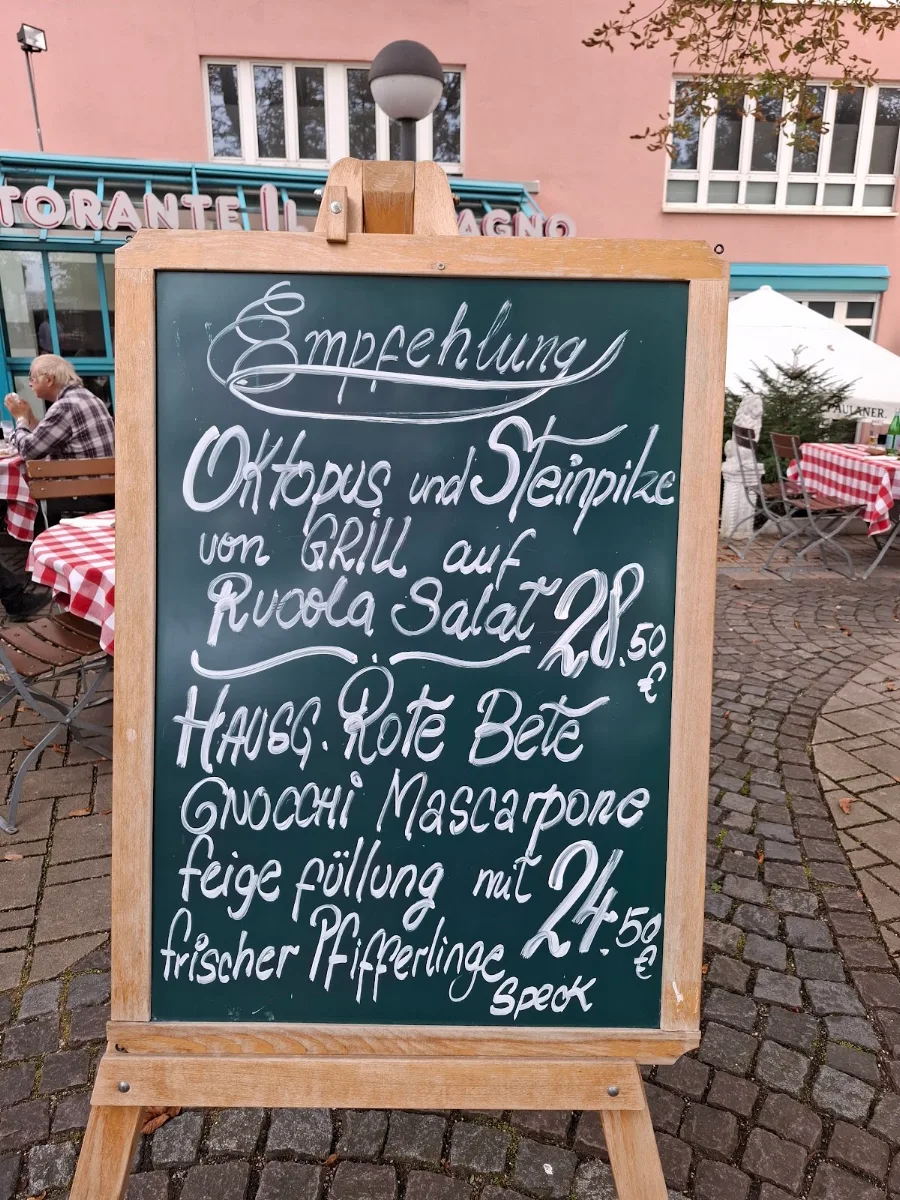 TORANTE IL
AGNO
PAULANER.
Empfehlung
Oktopus und Steinpilze
von GRILL auf
Rucola Salat 28.50
€
HAUSG. Rote Bete
GNOCCHi Mascarpone
feige füllung mit 24.50
€
frischer Pfifferlinge
Speck